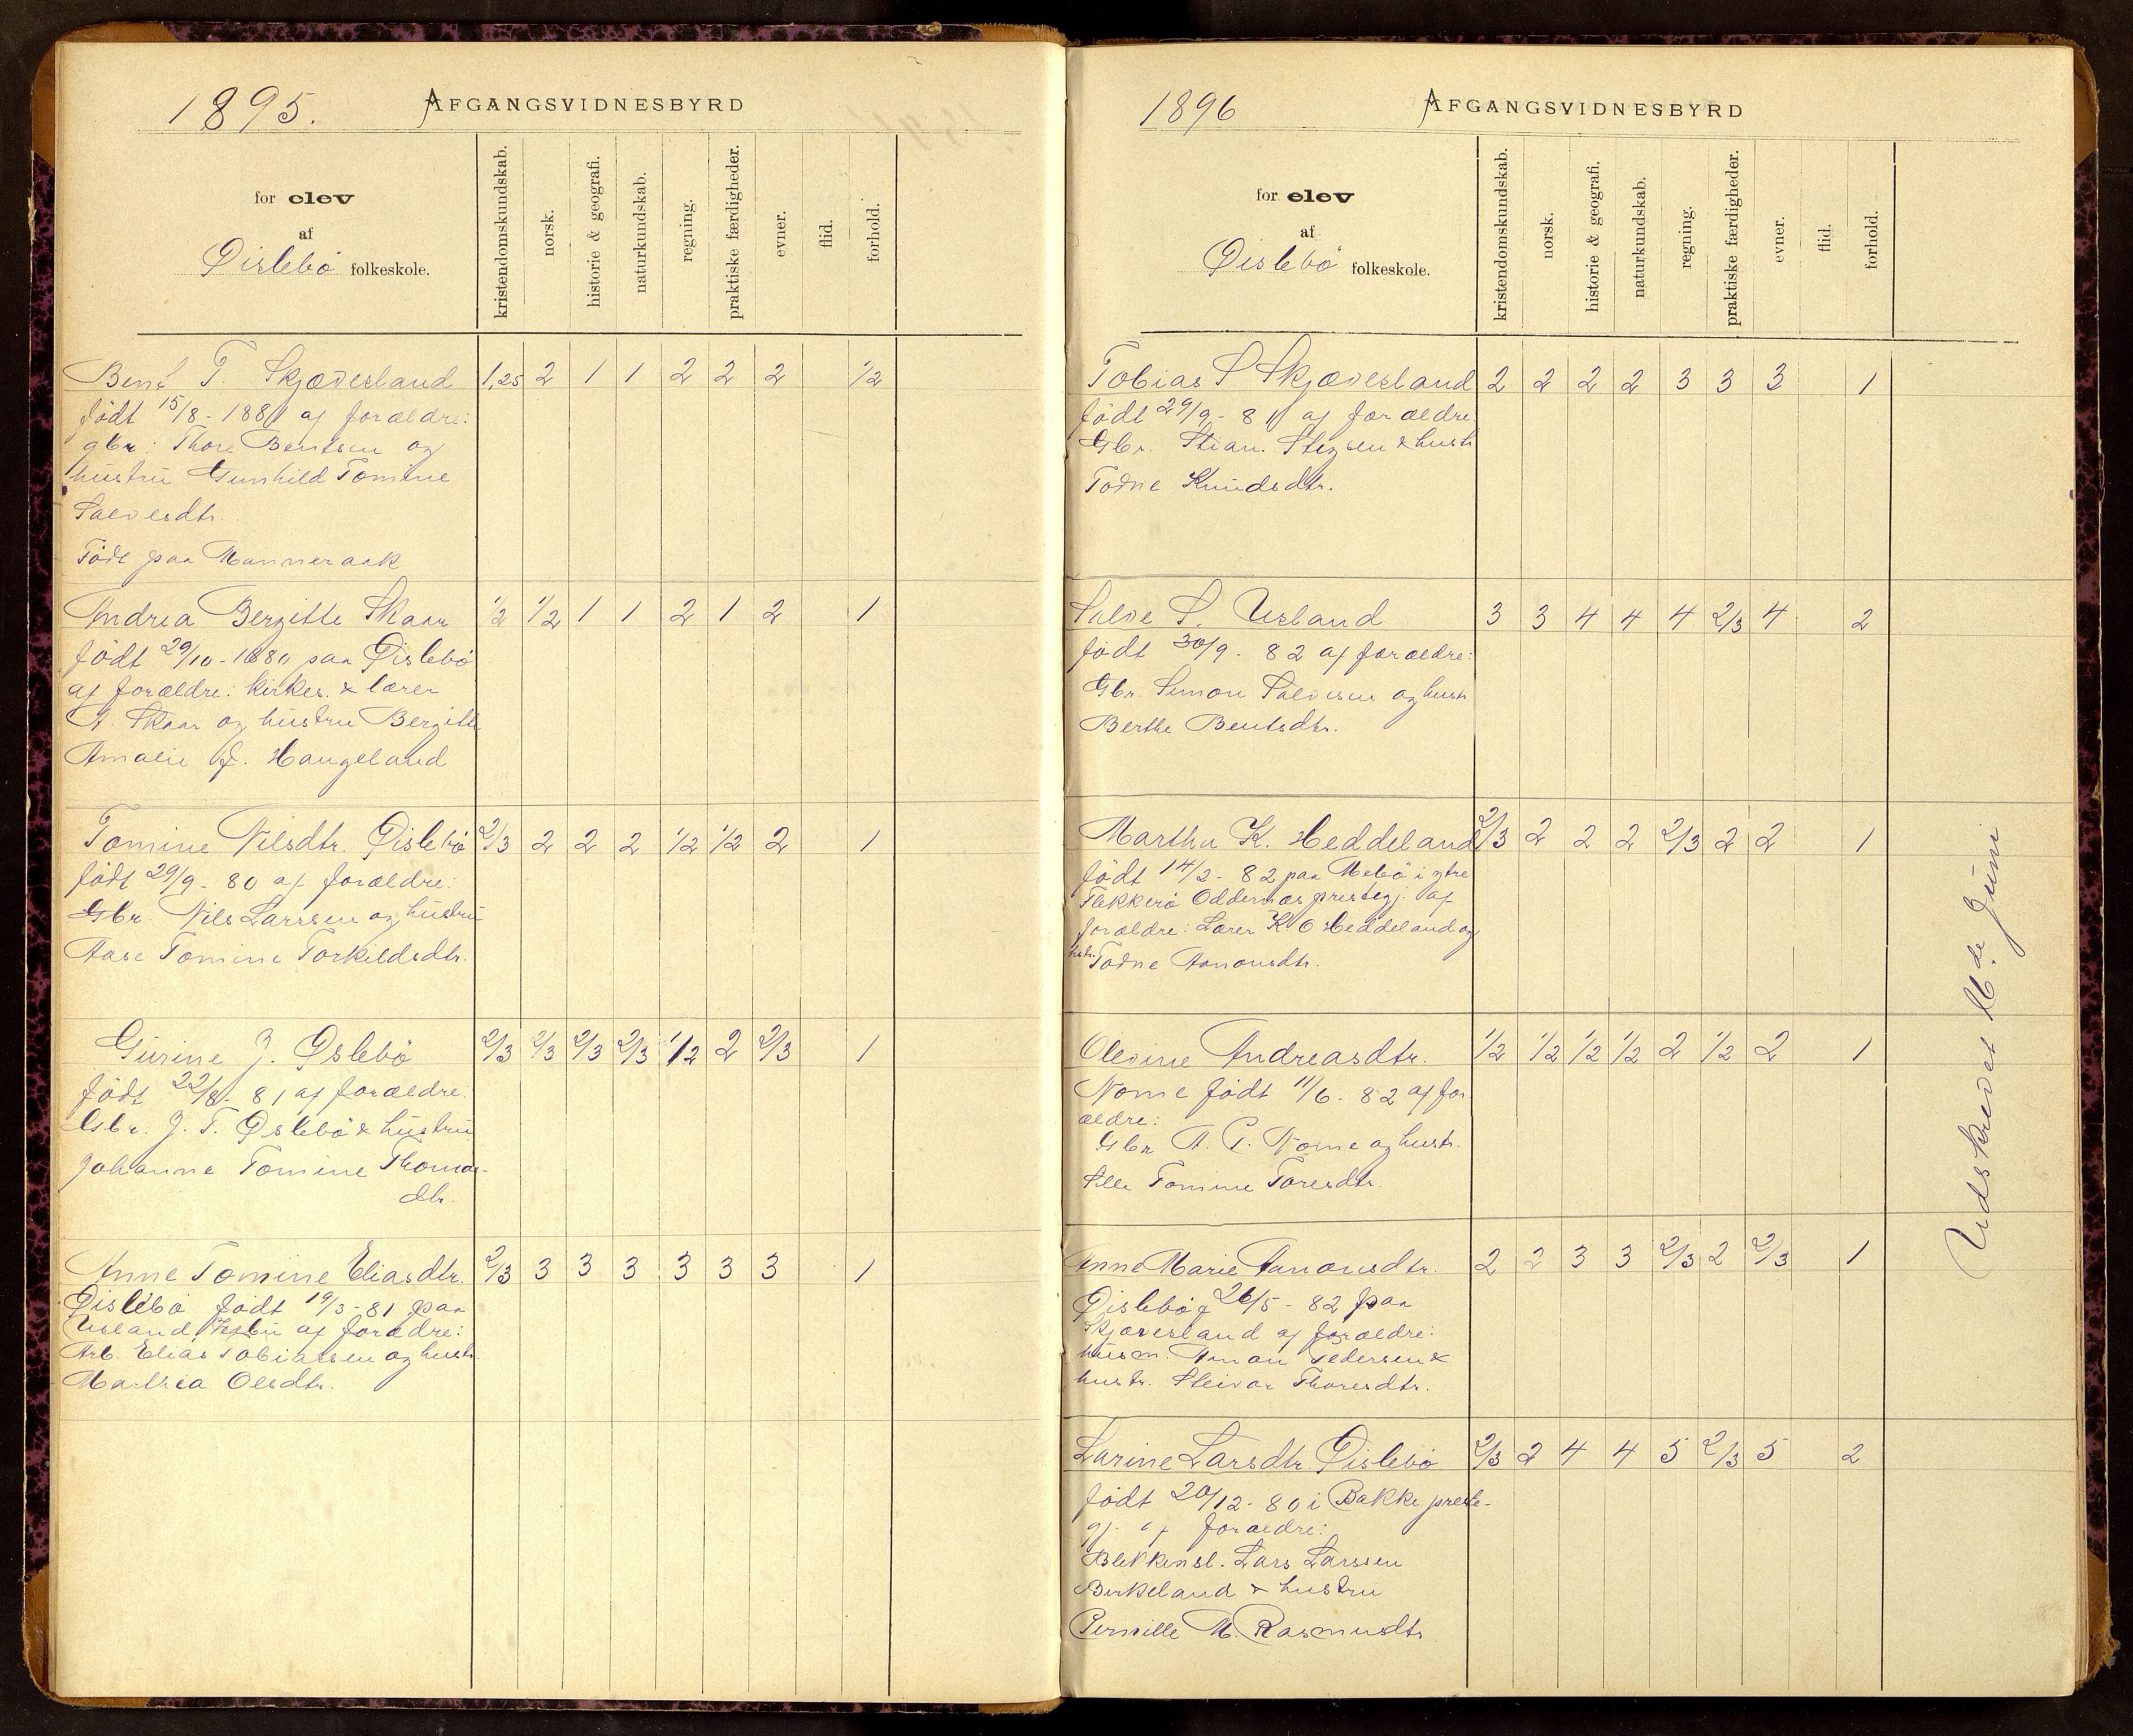 1895. AFGANGSVIDNESBYRD
for elev
af
Øislebö folkeskole.
kristendomskundskab.
norsk.
historie & geografi.
naturkundskab.
regning.
praktiske færdigheder.
evner.
flid.
forhold.
Bent T. Skjævesland 1,25 2 1 1 2 2 2 1/2
født 15/8 - 1881 af forældre:
gbr: Thore Bentsen og
hustru Gunhild Tomine
Salvesdtr.
Föd paa Manneraak
Andrea Bergitte Skaar 1/2 1/2 1 1 2 1 2 1
födt 29/10 - 1880 paa Øislebö
af forældre: kirkes. & lærer
A. Skaar og hustru Bergitte
Amalie f. Haugeland
Tomine Nilsdtr. Øislebö 2/3 2 2 2 1/2 1/2 2 1
födt 29/9 - 80 af forældre:
Gbr. Nils Larssen og hustru
Aase Tomine Torkildsdtr.
Gurine J. Øslebö 2/3 2/3 2/3 2/3 1/2 2 2/3 1
födt 22/8 - 81 af forældre.
Gbr. J. T. Øslebö & hustru
Johanne Tomine Thomas-
dtr.
Anne Tomine Eliasdtr. 2/3 3 3 3 3 3 3 1
Øislebö födt 19/3 - 81 paa
Usland af forældre:
Arb. Elias Tobiassen og hustr.
Mathea Olsdtr.
1896 AFGANGSVIDNESBYRD
for elev
af
Øislebö folkeskole.
kristendomskundskab.
norsk.
historie & geografi.
naturkundskab.
regning.
praktiske færdigheder.
evner.
flid.
forhold.
Tobias S Skjævesland 2 2 2 2 3 3 3 1
födt 29/9 - 81 af forældre
Gbr. Stian. & hustr
Todne Knudsdtr.
Salve S. Usland 3 3 4 4 4 2/3 4 2
födt 30/9 - 82 af forældre:
Gbr. Simon Salvesen og hustr
Berthe Bentsdtr.
Martha K. Heddeland 2/3 2 2 2 2/3 2 2 1
födt 14/2 - 82 paa Mebö i ytre
Flekkerö Oddernes prestegj. af
forældre: Lærer K O Heddeland og
hstr. Todne Aanonsdtr.
Olevine Andreasdtr. 1/2 1/2 1/2 1/2 2 1/2 2 1
Nome födt 11/6 - 82 af for
ældre:
Gbr A. G. Nome og hustr.
Sille Tomine Toresdtr.
Anne Marie Aanonsdtr. 2 2 3 3 2/3 2 2/3 1
Øislebö f 26/5 - 82 paa
Skjævesland af forældre:
husm. Aanon Pedersen &
hustr. Steivor Thoresdtr.
Larine Larsdtr Øislebö 2/3 2 4 4 5 2/3 5 2
födt 20/12 - 80 i Bakke preste-
gj. af forældre:
Blekkensl. Lars Larssen
Birkeland & hustru
Pernille M. Rasmusdtr
Udskrevet 16de Juni